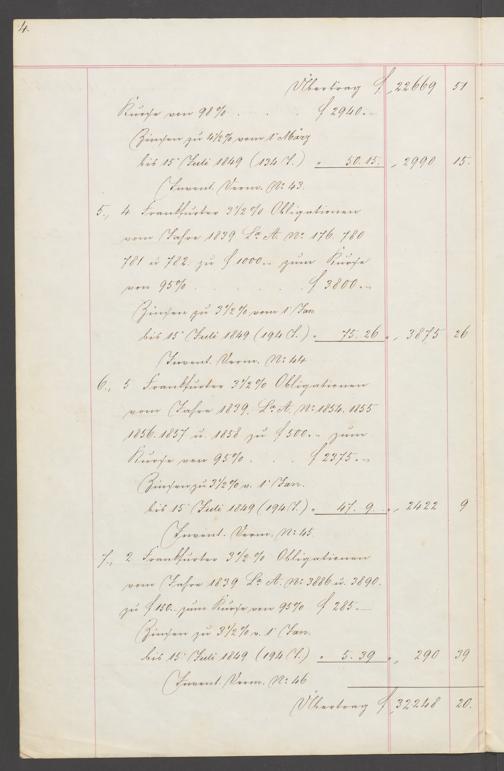 4.
Übertrag f 22669 51
Kurse von 98% . . . f 2940.-
Zinsen zu 4½% vom 1t März
bis 15t Juli 1849 (134 T.) " 50.15. " 2990 15.
Invent. Verm. No 43.
5., 4 Frankfurter 3½% Obligationen
vom Jahre 1839 La A. No 176. 780
781 u 782. zu f 1000.- zum Kurse
von 95% . . . . f 3800.-
Zinsen zu 3½% vom 1t Jan
bis 15t Juli 1849 (194 T.) " 75.26 " 3875 26
Invent. Verm. No 44
6., 5 Frankfurter 3½% Obligationen
vom Jahre 1839. La A. No 1854. 1855
1856. 1857 u. 1858 zu f 500.- zum
Kurse von 95% . . . f 2375.-
Zinsen zu 3½% v. 1t Jan.
bis 15t Juli 1849 (194 T.) " 47. 9 " 2422 9
Invent. Verm. No 45
7., 2 Frankfurter 3½% Obligationen
vom Jahre 1839 La A. No 3886 u. 3890.
zu f 150.- zum Kurse von 95% f 285.-
Zinsen zu 3½% v. 1t Jan.
bis 15t Juli 1849 (194 T.) " 5.39 " 290 39
Invent. Verm. No 46
Übertrag f 32248 20.